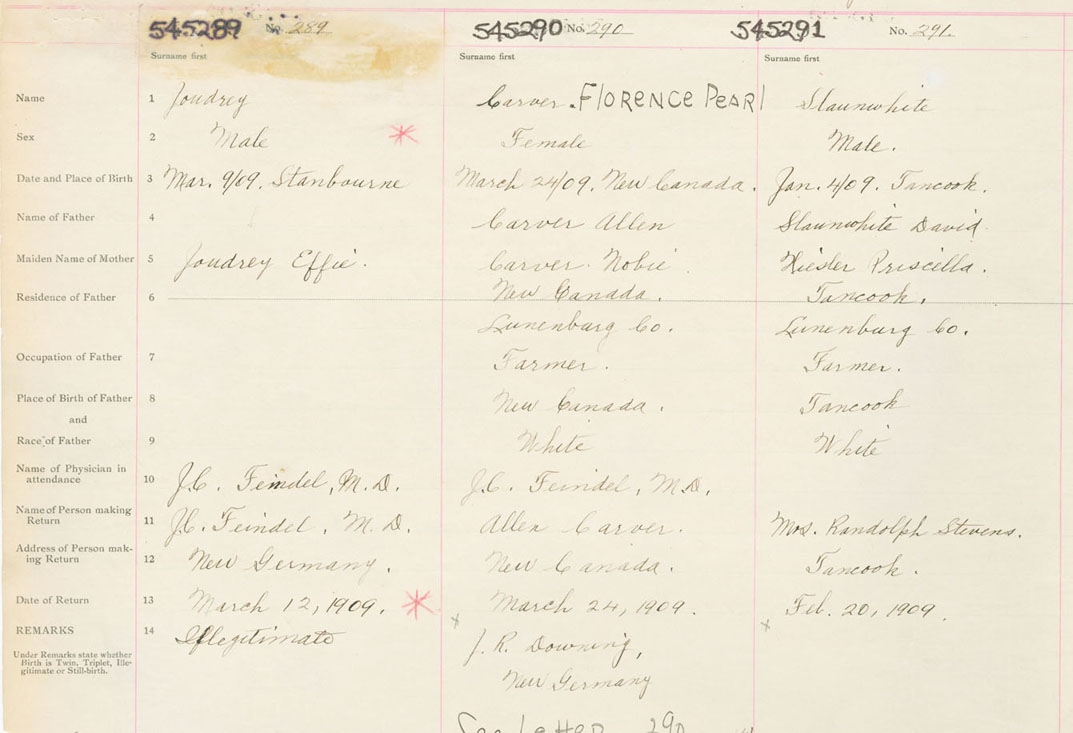 545289 No. 289
Surname first
545290 No. 290
Surname first
545291 No. 291.
Surname first
Name 1 Joudrey Carver. FLORENCE PEARL Slaunwhite
Sex 2 Male Female Male.
Date and Place of Birth 3 Mar. 9/09. Stanbourne March 24/09. New Canada. Jan. 4/09. Tancook.
Name of Father 4 Carver Allen Slaunwhite David
Maiden Name of Mother 5 Joudrey Effie. Carver Nobie. Hiesler Priscilla.
Residence of Father 6 New Canada. Tancook.
Lunenburg Co. Lunenburg Co.
Occupation of Father 7 Farmer. Farmer.
Place of Birth of Father 8 New Canada. Tancook
and
Race of Father 9 White White
Name of Physician in
attendance 10 J.C. Feindel, M.D. J.C. Feindel, M.D.
Name of Person making
Return 11 J.C. Feindel, M.D. Allen Carver. Mrs. Randolph Stevens.
Address of Person mak-
ing Return 12 New Germany. New Canada. Tancook.
Date of Return 13 March 12, 1909. March 24, 1909. Feb. 20, 1909.
REMARKS 14 Illegitimate J. R. Downing,
New Germany
Under Remarks state whether
Birth is Twin, Triplet, Ille-
gitimate or Still-birth.
See Letter 290